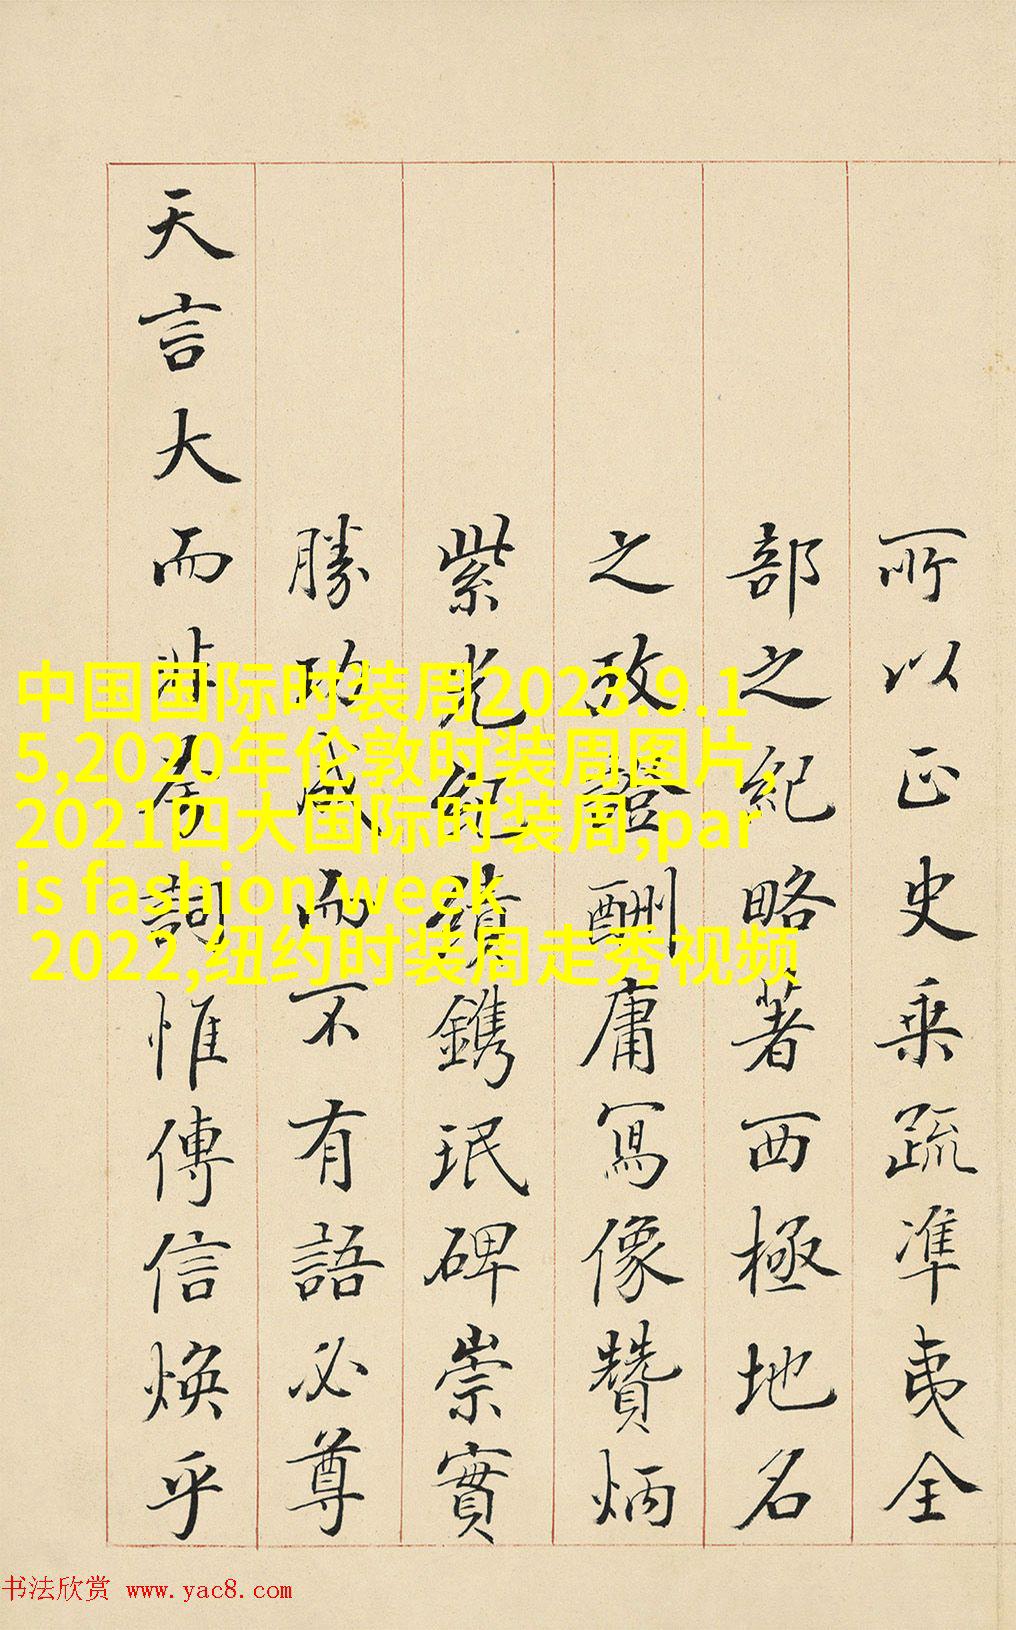 所以正史乘疏準夷全
部之紀略著西極地名
之攷證酬庸寫像贊炳
紫光紀鐫珉碑崇實
勝功成而不有語必尊
天言大而非夸詞惟傳信煥乎
中国国际时装周2023.9.1
5,2020年伦敦时装周图片,
2021四大国际时装周,par
is fashion week
2022,纽约时装周走秀视频
书法欣赏 www.yac8.com